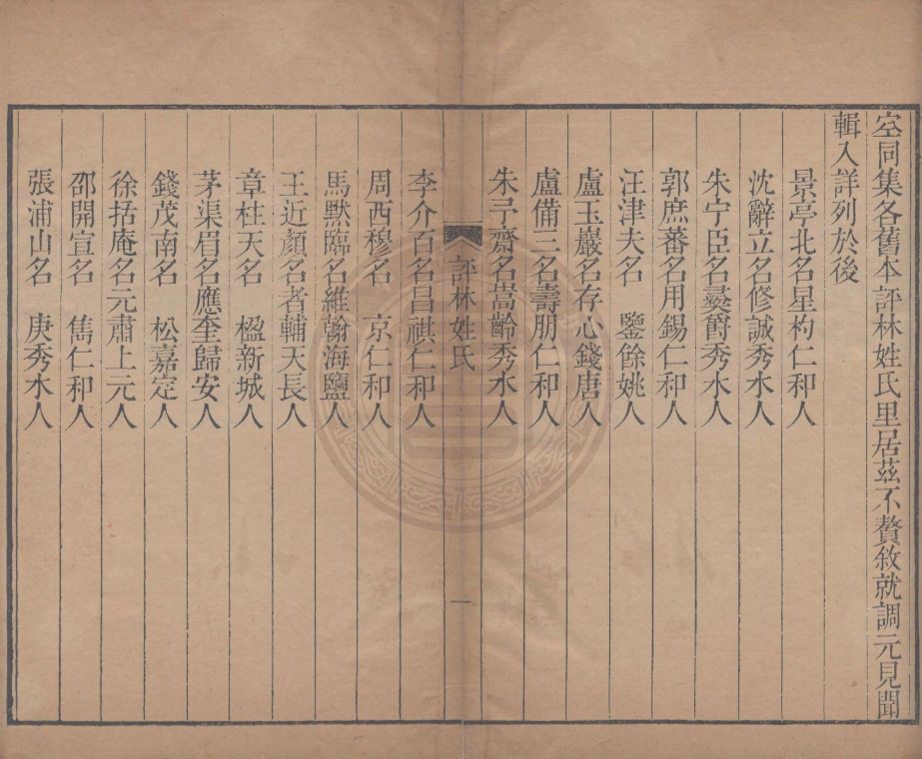 空同集各舊本評林姓氏里居茲不贅敘就調元見聞
輯入詳列於後
景亭北名星杓仁和人
沈辭立名修誠秀水人
朱宁臣名彝爵秀水人
郭庶蕃名用錫仁和人
汪津夫名　鑒餘姚人
盧玉巖名存心錢唐人
盧備三名壽朋仁和人
朱予齋名嵩齡秀水人
評林姓氏
一
李介百名昌祺仁和人
周西穆名　京仁和人
馬默臨名維翰海鹽人
王近顏名者輔天長人
章柱天名　楹新城人
茅渠眉名應奎歸安人
錢茂南名　松嘉定人
徐括庵名元肅上元人
邵開宣名　雋仁和人
張浦山名　庚秀水人